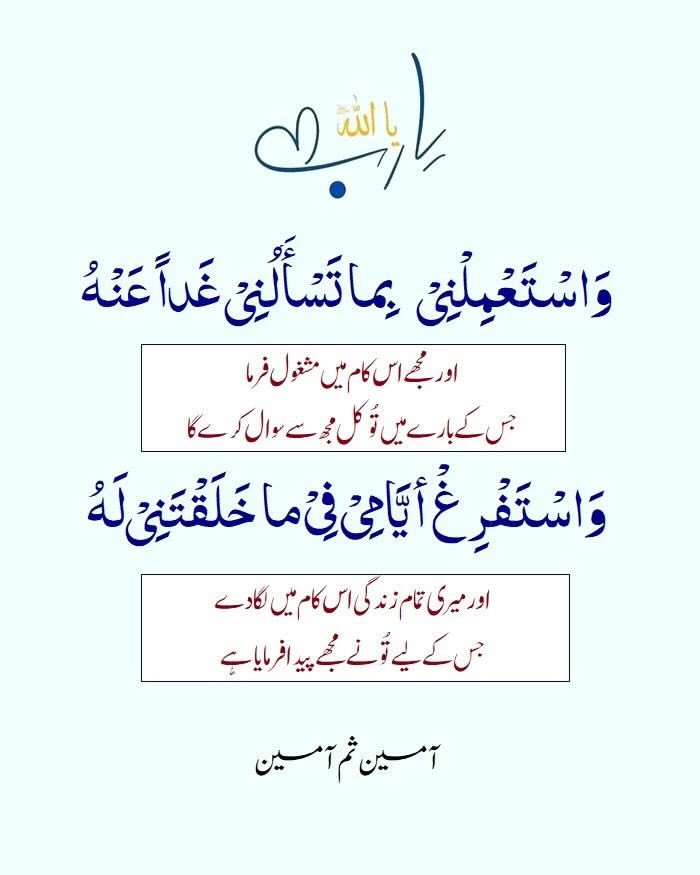 یا رب
یا اللہ
وَاسْتَعْمِلْنِیْ بِما تَسْأَلُنِیْ غَداً عَنْهُ
اور مجھے اس کام میں مشغول فرما
جس کے بارے میں تُو کل مجھ سے سوال کرے گا
وَاسْتَفْرِغْ أیَّامِیْ فِیْ ما خَلَقْتَنِیْ لَهُ
اور میری تمام زندگی اس کام میں لگا دے
جس کے لیے تُو نے مجھے پیدا فرمایا ہے
آمین ثم آمین